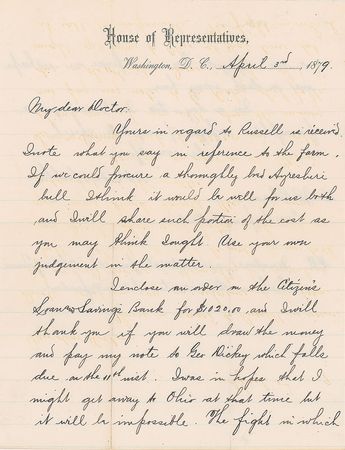 House of Representatives,
Washington, D. C., April 3rd, 1879.
My dear Doctor:
Yours in regard to Russell is received.
I note what you say in reference to the farm.
If we could procure a thoroughly bred Ayreshire
bull I think it would be well for us both
and I will share such portion of the cost as
you may think I ought Use your own
judgement in the matter.
I enclose an order on the Citizen's
Loan & Savings Bank for $1020.00 and I will
thank you if you will draw the money
and pay my note to Geo Dickey which falls
due on the 11th inst. I was in hopes that I
might get away to Ohio at that time but
it will be impossible. The fight in which